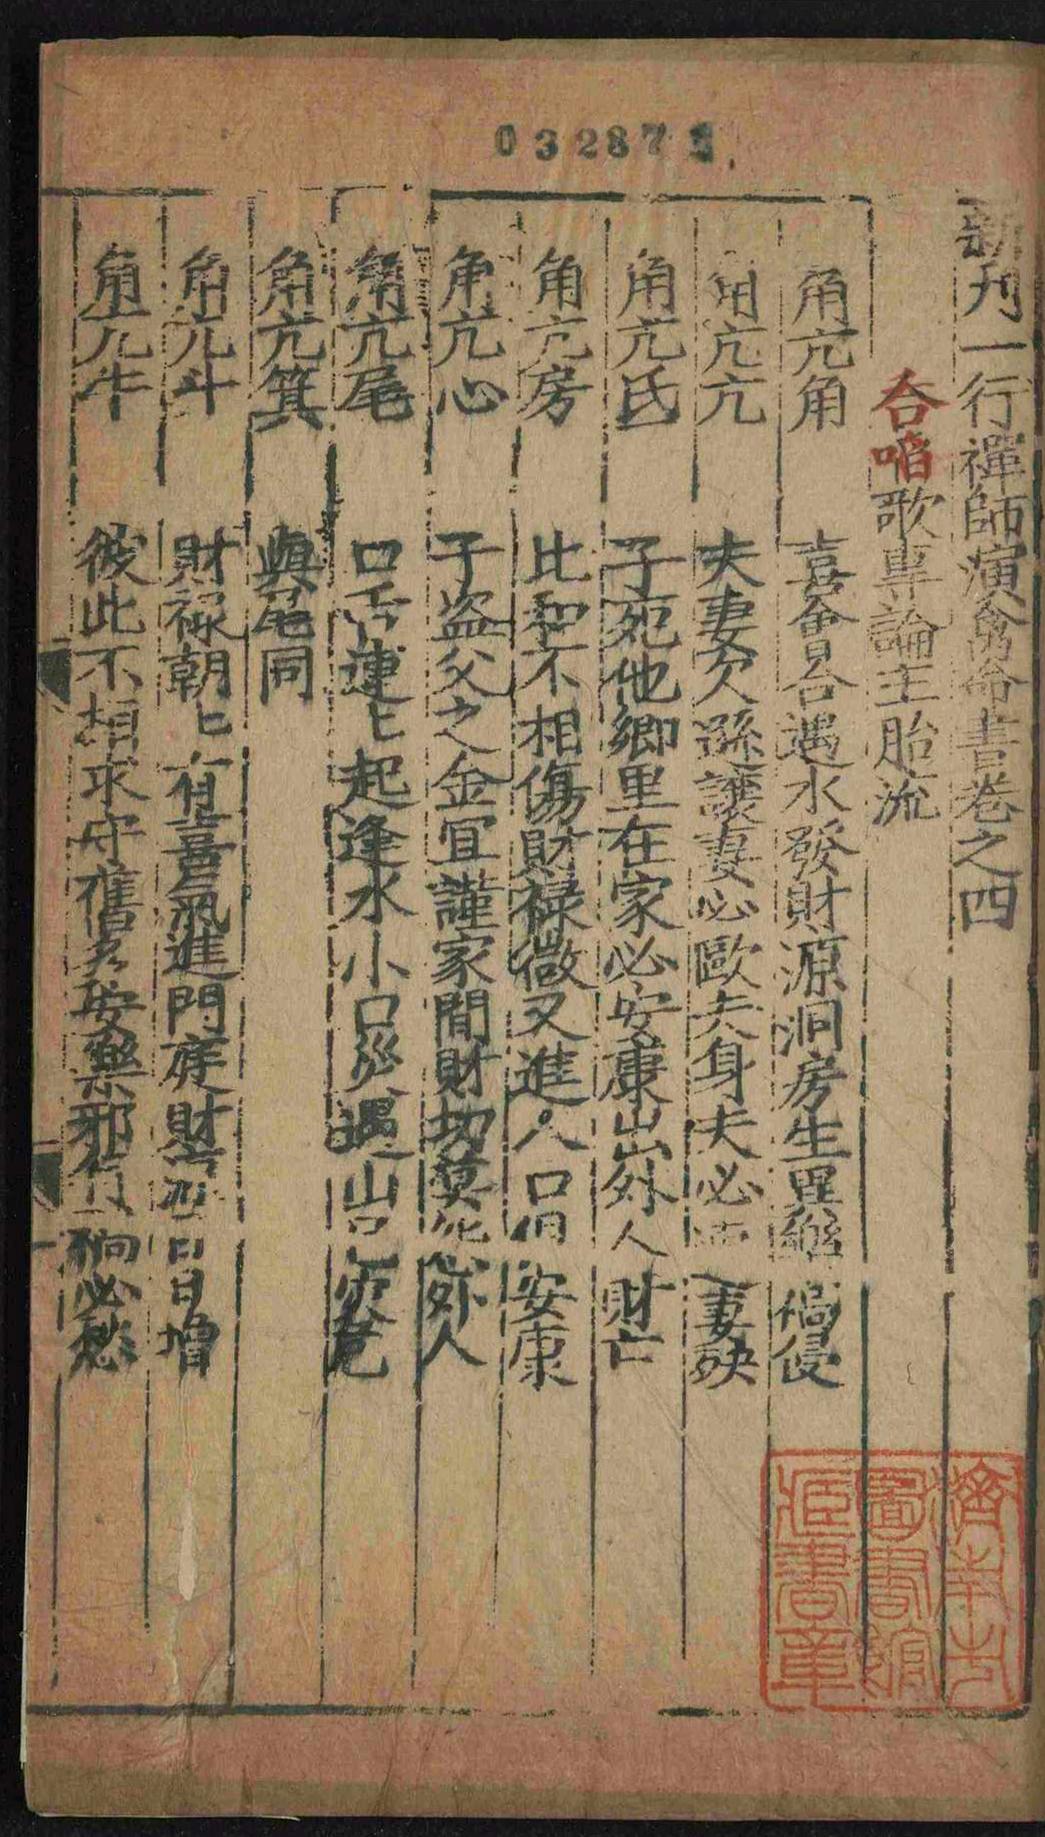 032871
新刊一行禪師演禽命書卷之四
合啗歌專論主胎流
角亢角 喜會合遇水發財源洞房生異禍侵
角亢亢 夫妻欠遜讓妻必歐夫身夫必妻殃
角亢氐 子死他鄉里在家必安康出外人財亡
角亢房 比和不相傷財祿微又進人口安康
角亢心 子盜父之金宜謹家間財切莫外人
角亢尾 口舌連匕起逢水小口災遇山災危
角亢箕 與尾同
角亢斗 財祿朝匕有喜氣進門庭財日增
角亢牛 彼此不相求守舊安樂邪必愁
濟南市
圖書館
藏書章